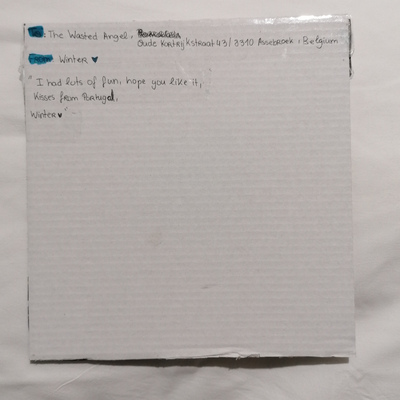 To: The Wasted Angel,
Oude Kortrijkstraat 43/ 8310 Assebroek, Belgium
From: Winter ♥
"I had lots of fun, hope you like it,
kisses from Portugal,
Winter ♥"